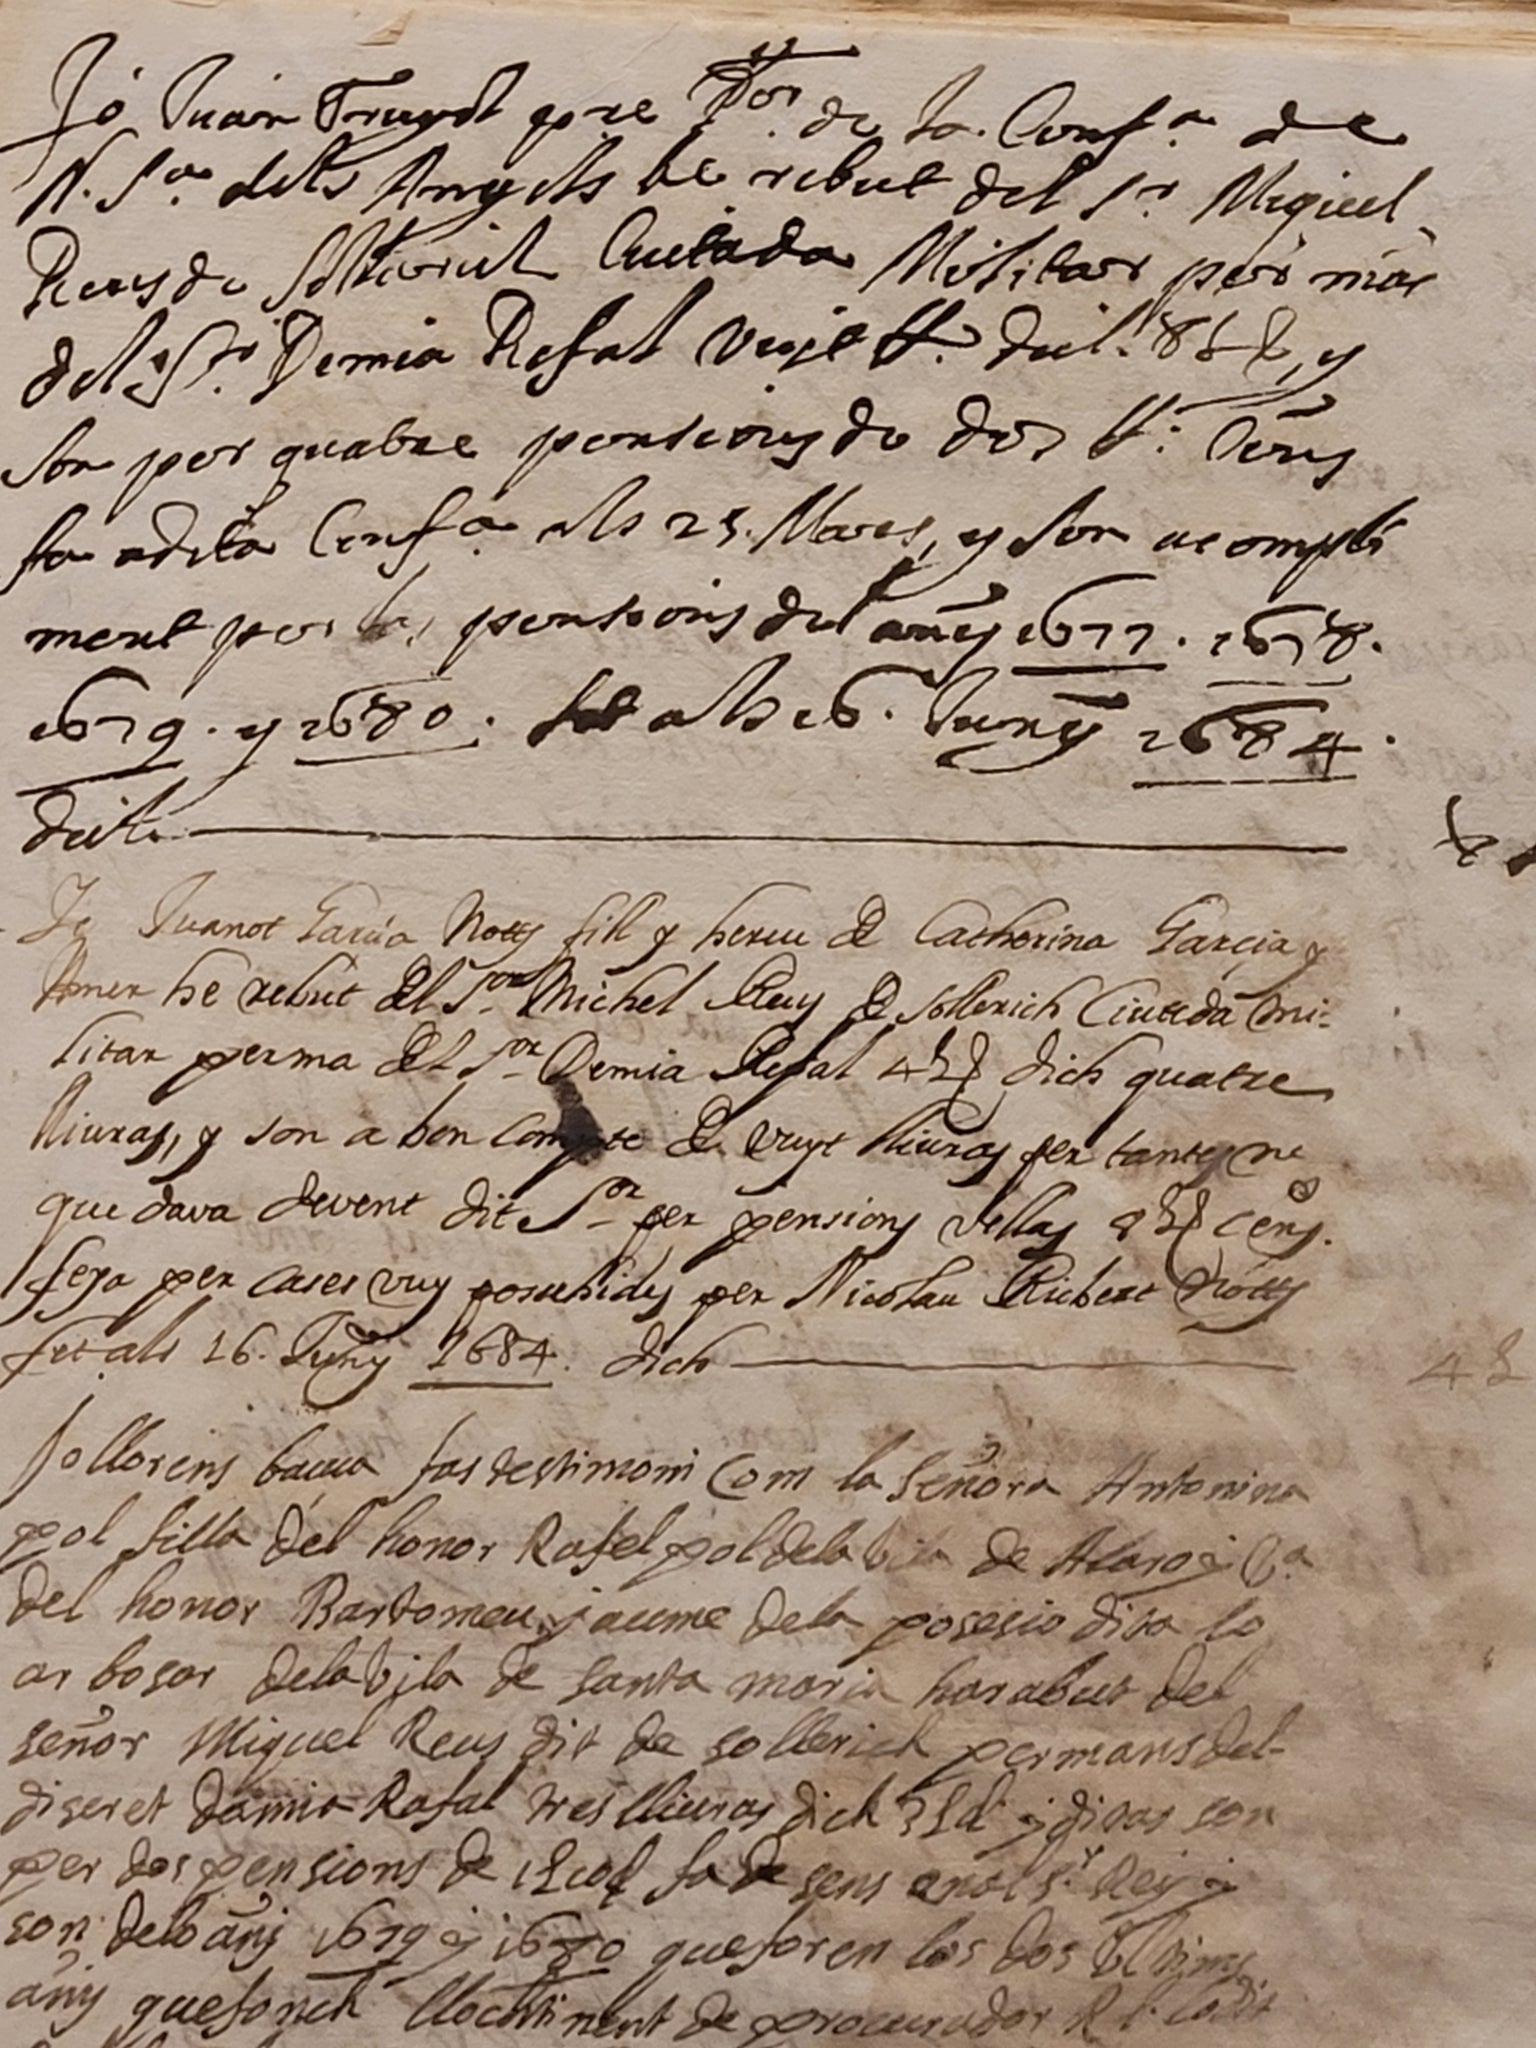 Jo Juan Truyol pre Dor. de la. Confa. de
N. Sa. dels Angels he rebut del Sr Miquel
Reus de Solleric Ciutada Militar per mãs
del Sr. Demia Rafal vuyt ll. dich 8 ll, y
son per quatre pensions de dos ll. Cens
fa a dita Confa als 25. Mars, y son a compli
ment per las pensions del añy 1677. 1678.
1679. y 1680. fet als 16. Juny 1684.
dich
Jo Juanot Garcia Notty fill y hereu de Catherina Garcia y
Amer he rebut del Sor Michel Reus de Sollerich Ciutedà mi-
litar per ma del Sor Demia Rafal 4 ll dich quatre
lliuras, y son a bon Compte de vuyt lliuras per tantes me
quedava devent dit Sor per pensions vellas 8 ll cens.
feya per cases vuy possehides per Nicolau Ribert Notty
fet als 16. Juny 1684. dich 4 ll
Jo llorens bauça fas testimoni Com la señora Antonina
pol filla del honor Rafel pol de la vila de Alaro y va
del honor Bartomeu jaume dela posesio dita lo
arbosar dela vila de santa maria ha rabut del
señor Miquel Reus dit de sollerich per mans del
diseret damia Rafal tres lliuras dich 3 ll y ditas son
per dos pensions de 1 ll 10 s fa de sens al Sr Rey y
son delo añy 1679 y 1680 que foren los dos ultims
añy que fonch lloctinent de procurador Rl. lo dit